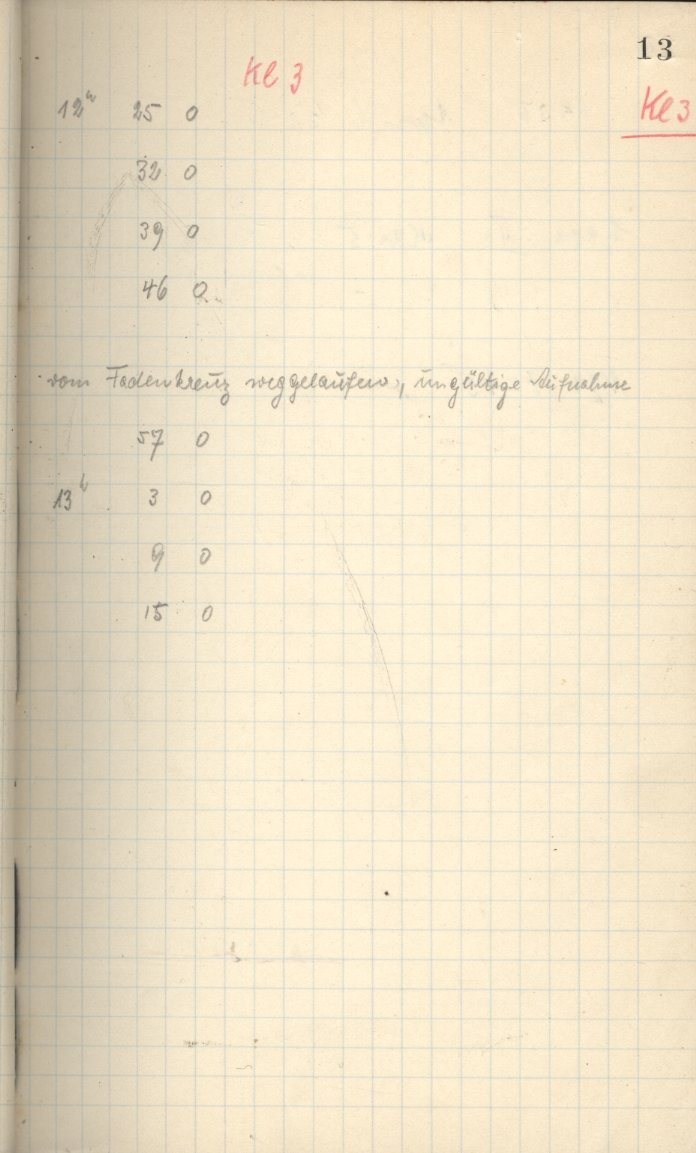 13
Kl 3
Kl 3
12h 25 0
32 0
39 0
46 0
vom Fadenkreuz weggelaufen, ungültige Aufnahme
57 0
13h 3 0
9 0
15 0